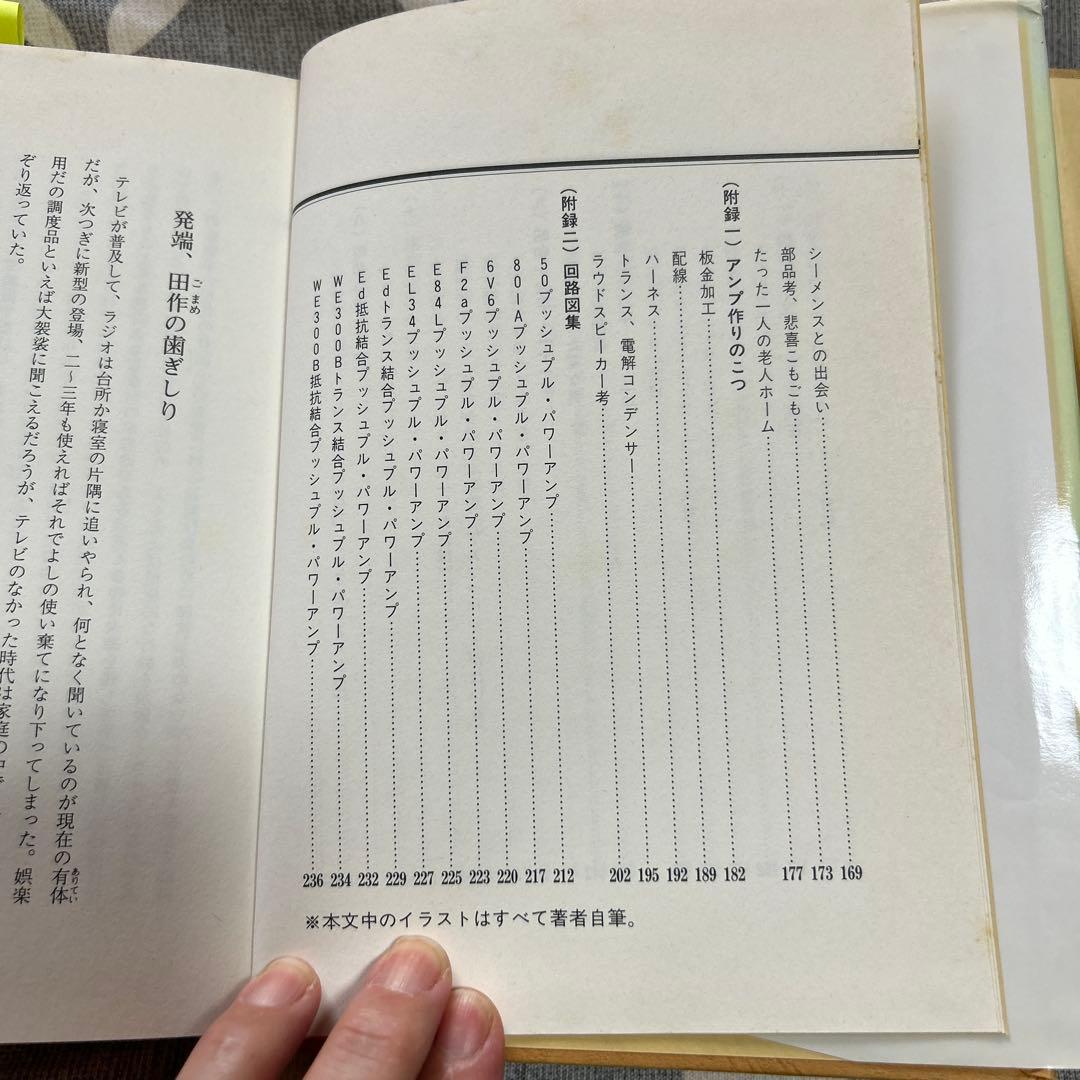 シーメンスとの出会い……169
部品考、悲喜こもごも……173
たった一人の老人ホーム……177
(附録一) アンプ作りのこつ
板金加工……182
配線……189
ハーネス……192
トランス、電解コンデンサー……195
ラウドスピーカー考……202
(附録二) 回路図集
50プッシュプル・パワーアンプ……212
801Aプッシュプル・パワーアンプ……217
6V6プッシュプル・パワーアンプ……220
F2aプッシュプル・パワーアンプ……223
E84Lプッシュプル・パワーアンプ……225
EL34プッシュプル・パワーアンプ……227
Edトランス結合プッシュプル・パワーアンプ……229
Ed抵抗結合プッシュプル・パワーアンプ……232
WE300Bトランス結合プッシュプル・パワーアンプ……234
WE300B抵抗結合プッシュプル・パワーアンプ……236
※本文中のイラストはすべて著者自筆。
発端、田作の歯ぎしり
ごまめ
テレビが普及して、ラジオは台所か寝室の片隅に追いやられ、何となく聞いているのが現在の有体
ありてい
だが、次つぎに新型の登場、二〜三年も使えればそれでよしの使い棄てになり下ってしまった。娯楽
用だの調度品といえば大袈裟に聞こえるだろうが、テレビのなかった時代は家庭の中で
ぞり返っていた。